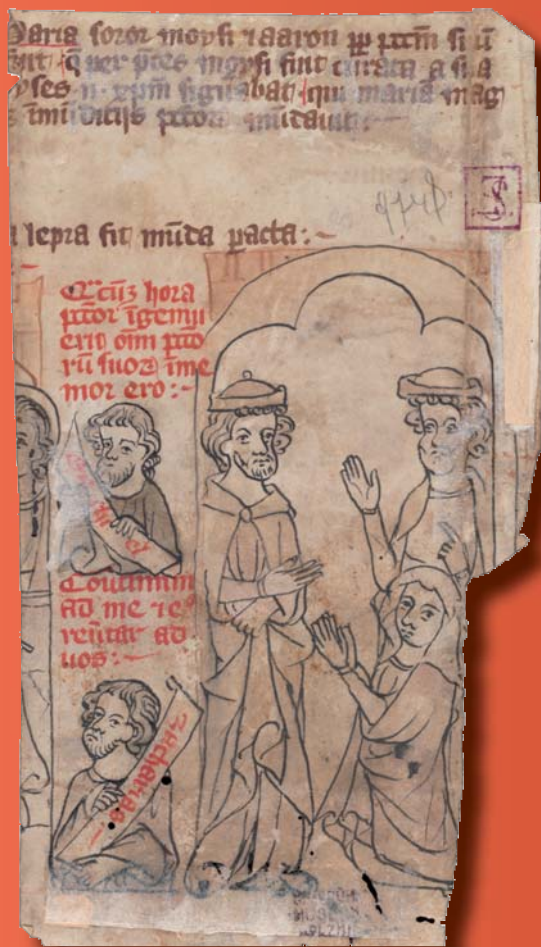 Maria soror moysi ⁊ aaron pp̄ pctm̄ si ū
q̄ per p̄ces moysi fuit curata a sua
yses n. xp̄m sig̅bat qui maria mag
īmūdicijs pctoꝝ mūdauit:-
a lepra fit mūda pacta:-
Q̄cūꝫ hora
pctor īgemu
erit oīm pcto
rū suoꝝ īme
mor ero:-
Couūtimini
ad me ⁊ re
ūtar ad
uos:-
Zacharias